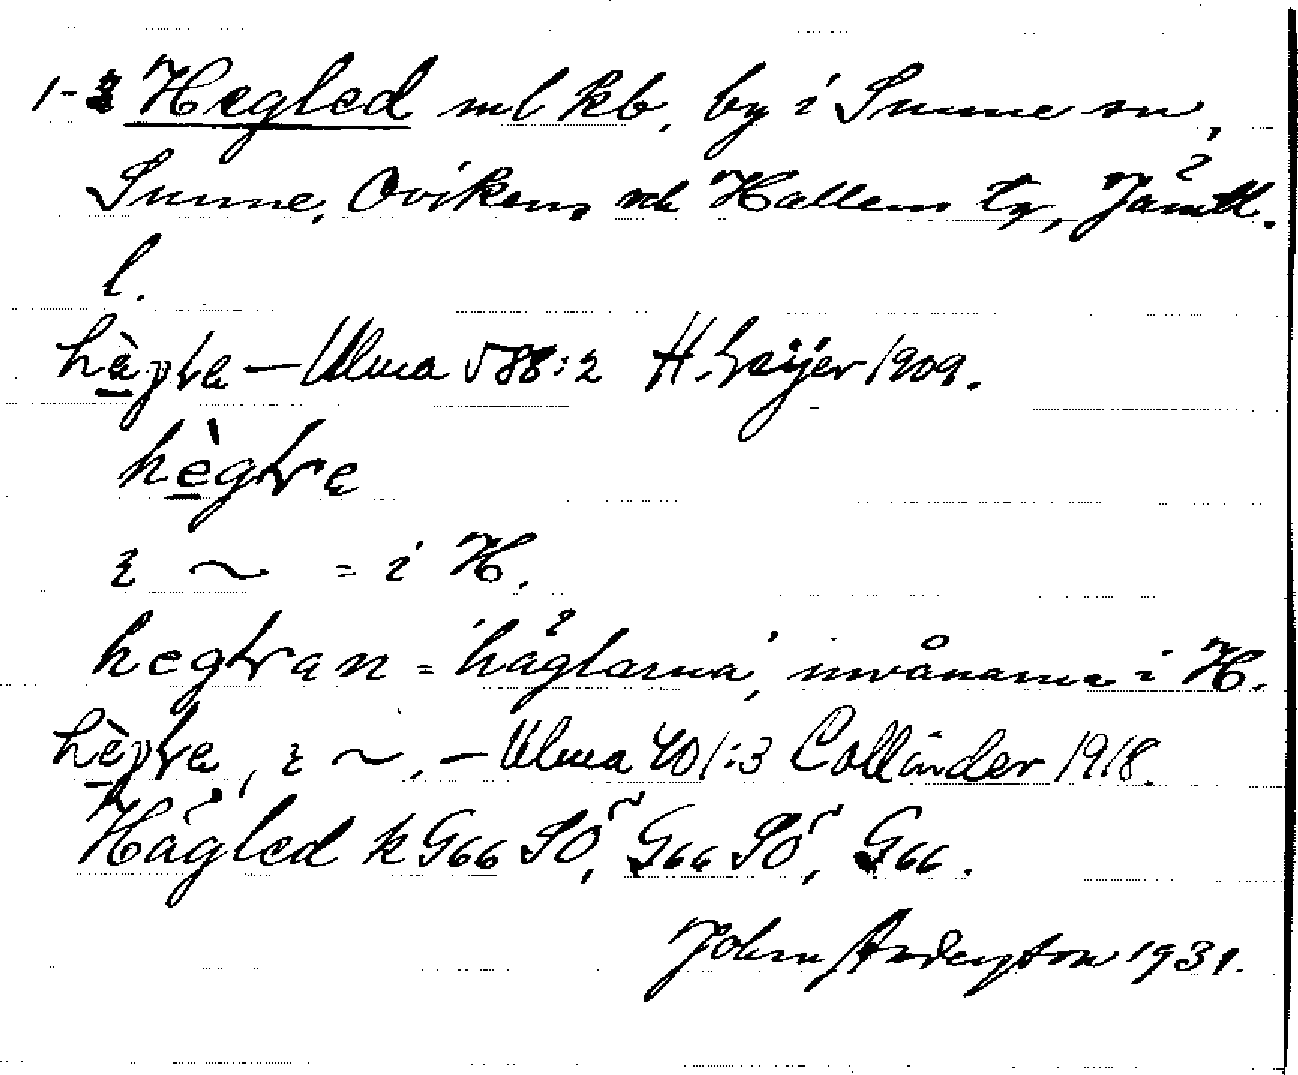 1-2 Hegled ml kb, by i Sunne sn,
Sunne, Ovikens och Hallens tg, Jämtl.
l.
— Ulma 588:2 H. Geijer 1909.
hègłra
ı ~ = i H.
hegłran = 'häglarna', invånarna i H.
, ı ~, — Ulma 401:3 Collinder 1918.
Hägled k G66 SÖ, G66 SÖ, G66.
John Anderzton 1931.